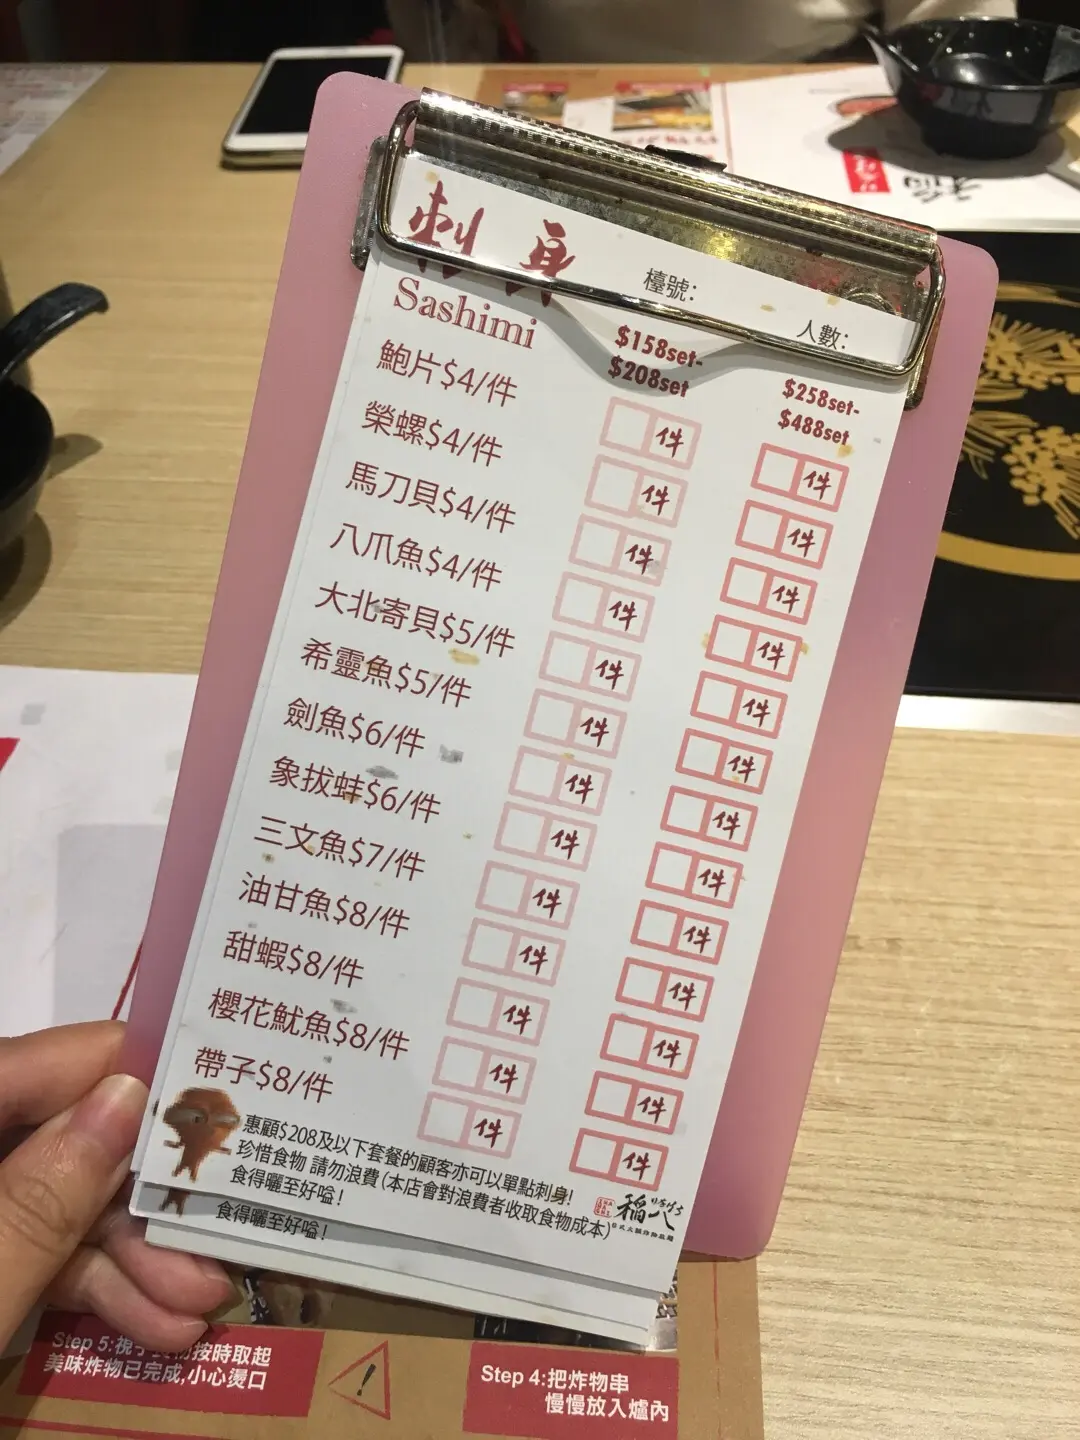 刺身
檯號:
人數:
Sashimi
$158set-
$208set
$258set-
$488set
鮑片$4/件 件 件
榮螺$4/件 件 件
馬刀貝$4/件 件 件
八爪魚$4/件 件 件
大北寄貝$5/件 件 件
希靈魚$5/件 件 件
劍魚$6/件 件 件
象拔蚌$6/件 件 件
三文魚$7/件 件 件
油甘魚$8/件 件 件
甜蝦$8/件 件 件
櫻花魷魚$8/件 件 件
帶子$8/件 件 件
惠顧$208及以下套餐的顧客亦可以單點刺身!
珍惜食物 請勿浪費(本店會對浪費者收取食物成本)
食得曬至好嗌!
稲八
食得曬至好嗌!
Step 5:視乎食物按時取起
美味炸物已完成,小心燙口
Step 4:把炸物串
慢慢放入爐內